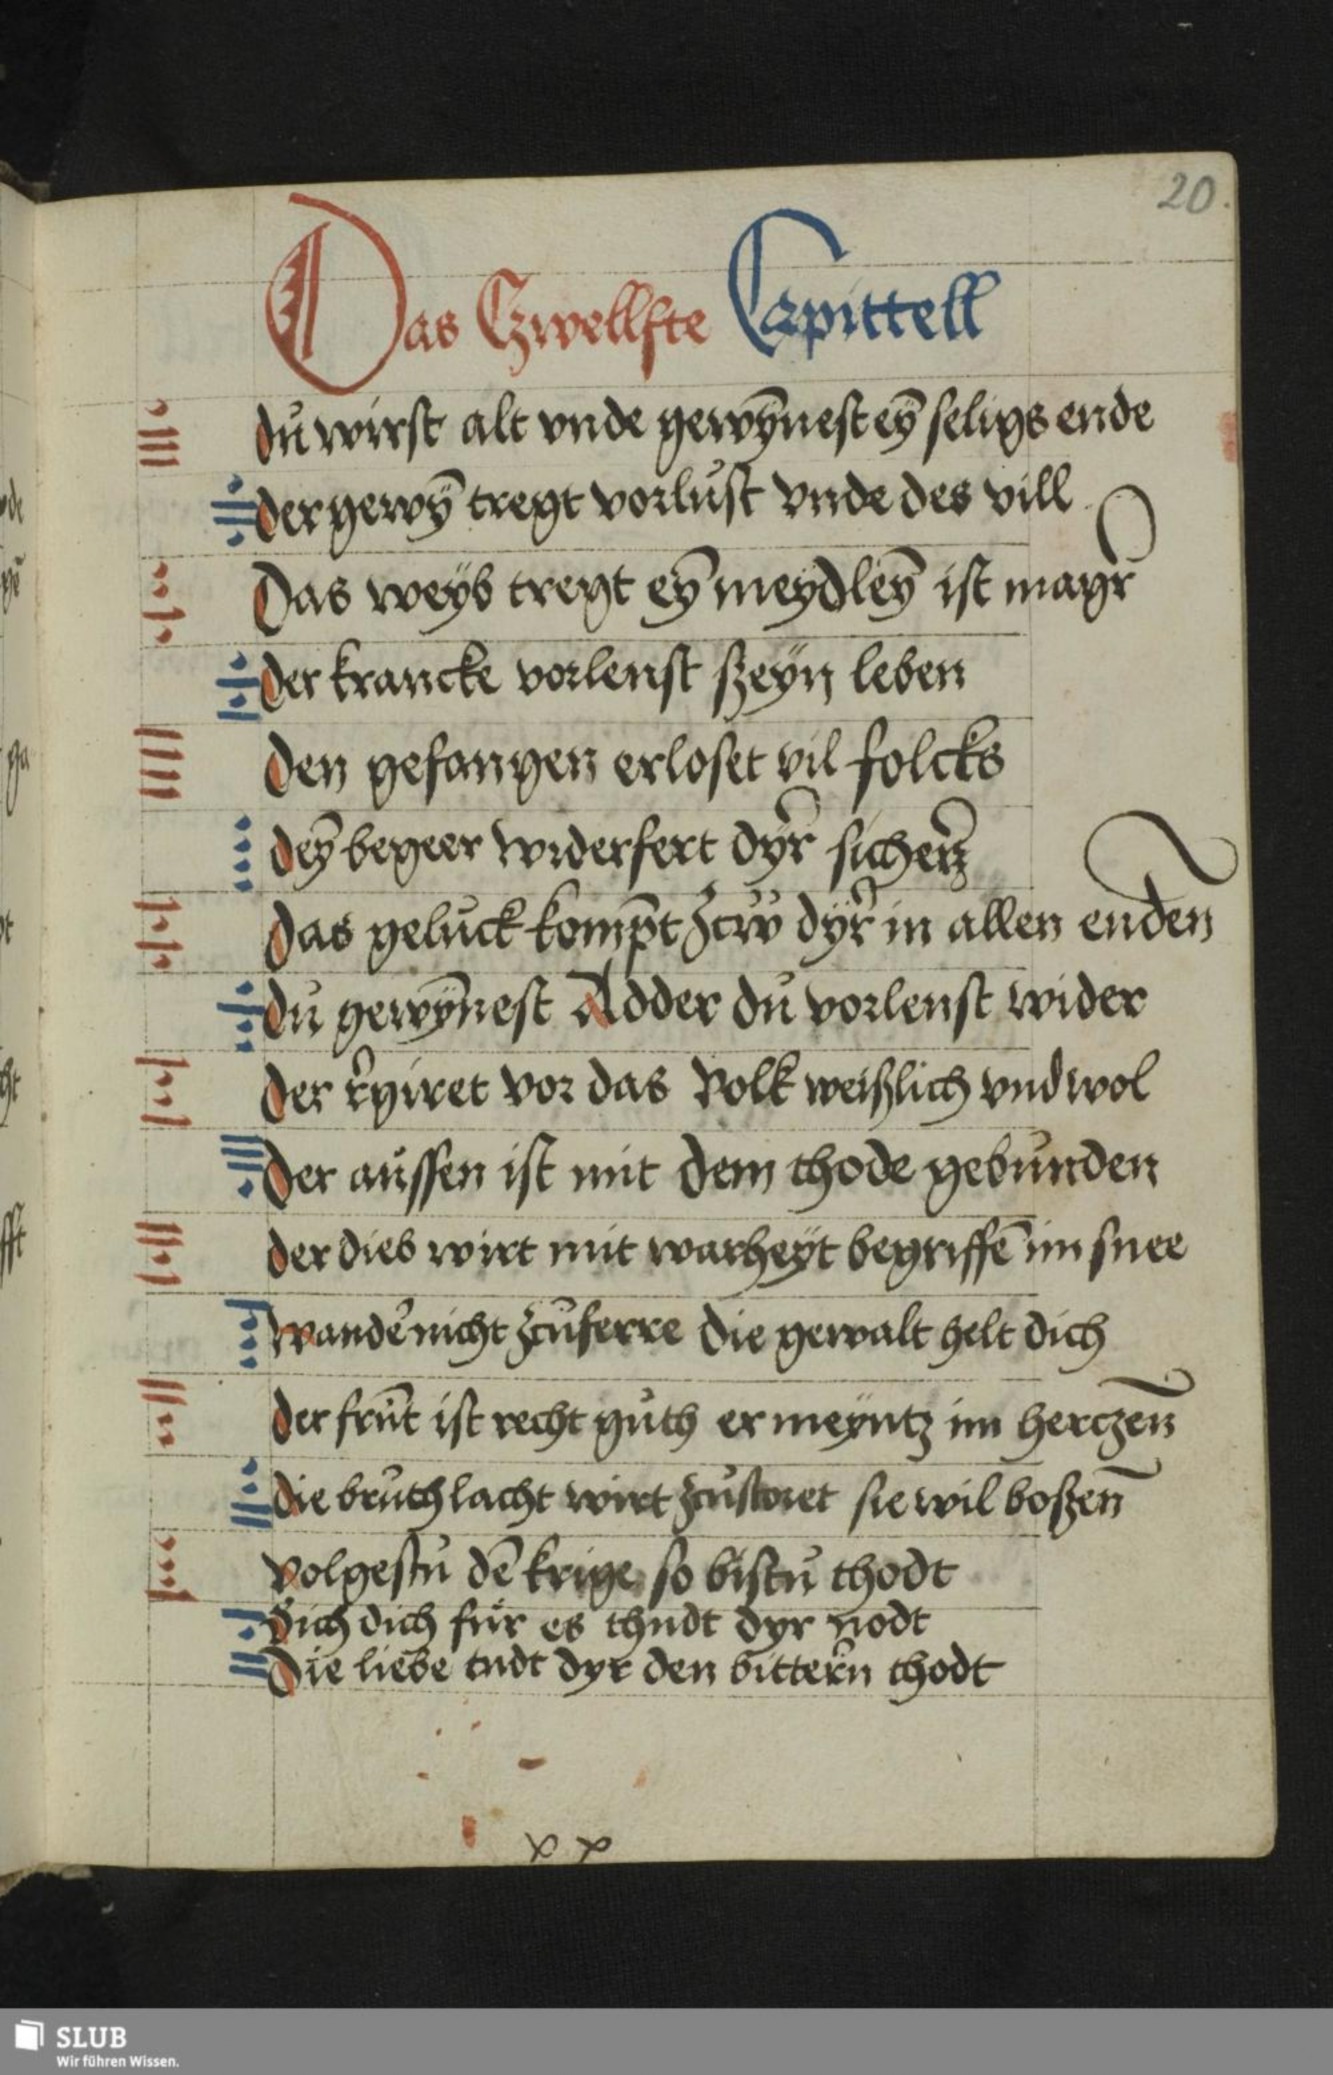 20.
Das Czwellfte Capittell
du wirst alt vnde gewȳnest eȳ seligs ende
der gewȳ tregt vorlust vnde des vill
Das weyb tregt eȳ meydleȳ ist magr
der krancke vorlenst szeyn leben
den gefangen erloset vil folcks
deȳ begeer widerfert dyr sicherz
das geluck kompt zcw dyr in allen enden
du gewȳnest Adder du vorlenst wider
der rgiret vor das Volk weißlich vnd wol
der aussen ist mit dem thode gebunden
der dieb wirt mit warheyt begriffē im snee
wande nicht zcuferre die gewalt helt dich
der frūt ist recht guth er meyntz im herczen̄
die bruthlacht wirt zcustoret sie wil boßen̄
volgestu dē krige so bistu thodt
Sich dich für es thudt dyr nodt
Die liebe tudt dyr den bittern thodt
xx
SLUB
Wir führen Wissen.